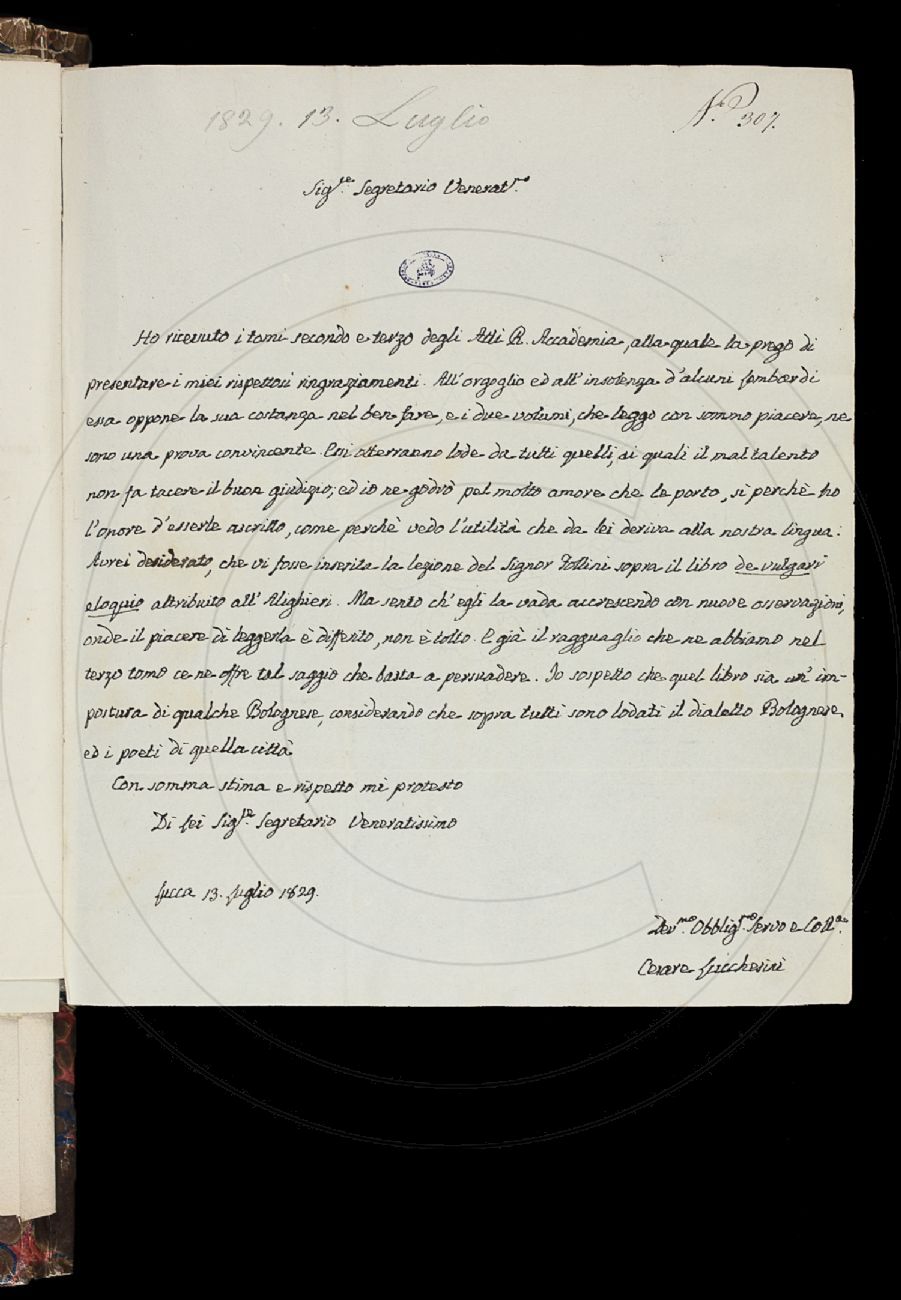 1829. 13. Luglio
N.º 307.
Sig.re Segretario Venerat.mo
Ho ricevuto i tomi secondo e terzo degli Atti R. Accademia, alla quale la prego di
presentare i miei rispettosi ringraziamenti. All'orgoglio ed all'insolenza d'alcuni Lombardi
essa oppone la sua costanza nel ben fare, e i due volumi, che leggo con sommo piacere, ne
sono una prova convincente. Essi otterranno lode da tutti quelli, ai quali il mal talento
non fa tacere il buon giudizio; ed io ne godrò pel molto amore che le porto, sì perchè ho
l'onore d'esserle ascritto, come perchè vedo l'utilità che da lei deriva alla nostra lingua.
Avrei desiderato, che vi fosse inserita la lezione del Signor Zollini sopra il libro de vulgari
eloquio attribuito all'Alighieri. Ma sento ch'egli la vada accrescendo con nuove osservazioni,
onde il piacere di leggerla è differito, non è tolto. E già il ragguaglio che ne abbiamo nel
terzo tomo ce ne offre tal saggio che basta a persuadere. Io sospetto che quel libro sia un'im-
postura di qualche Bolognese, considerando che sopra tutti sono lodati il dialetto Bolognese,
ed i poeti di quella città
Con somma stima e rispetto mi protesto
Di Lei Sig.re Segretario Veneratissimo
Lucca 13. Luglio 1829.
Dev.mo Obblig.mo Servo e
Cesare Lucchesini